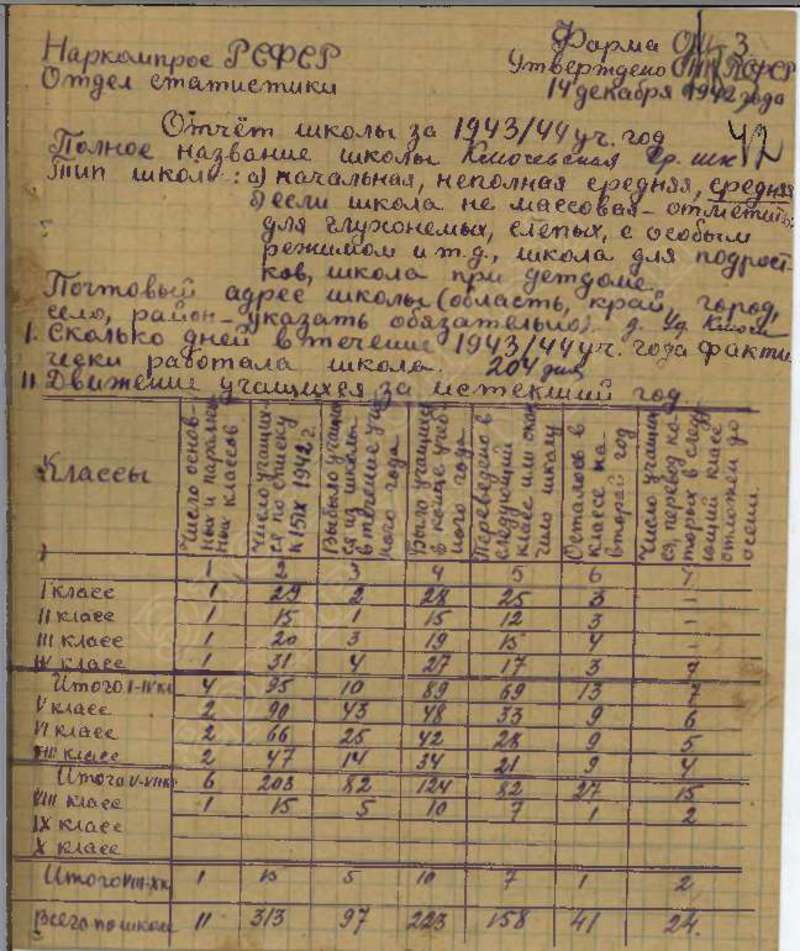 Наркомпрос РСФСР
Отдел статистики
Форма ОШ-3
Утверждено СНК РСФСР
14 декабря 1942 года
42
Отчёт школы за 1943/44 уч. год
Полное название школы ср. шк
Тип школы: а) начальная, неполная средняя, средняя
б) если школа не массовая - отметить:
для глухонемых, слепых, с особым
режимом и т.д., школа для подрост-
ков, школа при детдоме.
Почтовый адрес школы (область, край, город,
село, район - указать обязательно).
I. Сколько дней в течение 1943/44 уч. года факти
чески работала школа. 204 дня
II. Движение учащихся за истекший год
Классы
Число основ-
ных и параллель
ных классов
Число учащих-
ся по списку
к 15/IX 1942 г.
Выбыло учащих
ся из школы
в течение уч
ного года
Было учащихся
в конце учеб-
ного года
Переведено в
следующий
класс или окон
чило школу
Осталось в
классе на
второй год
Число учащих
ся, перевод ко-
торых в след
ующий класс
отложен до
осени.
1 2 3 4 5 6 7
I класс 1 29 2 28 25 3 -
II класс 1 15 1 15 12 3 -
III класс 1 20 3 19 15 4 -
IV класс 1 31 4 27 17 3 7
Итого I-IV кл 4 95 10 89 69 13 7
V класс 2 90 43 48 33 9 6
VI класс 2 66 25 42 28 9 5
VII класс 2 47 14 34 21 9 4
Итого V-VII кл 6 203 82 124 82 27 15
VIII класс 1 15 5 10 7 1 2
IX класс
X класс
Итого VIII-X к 1 15 5 10 7 1 2
Всего по школе 11 313 97 223 158 41 24.